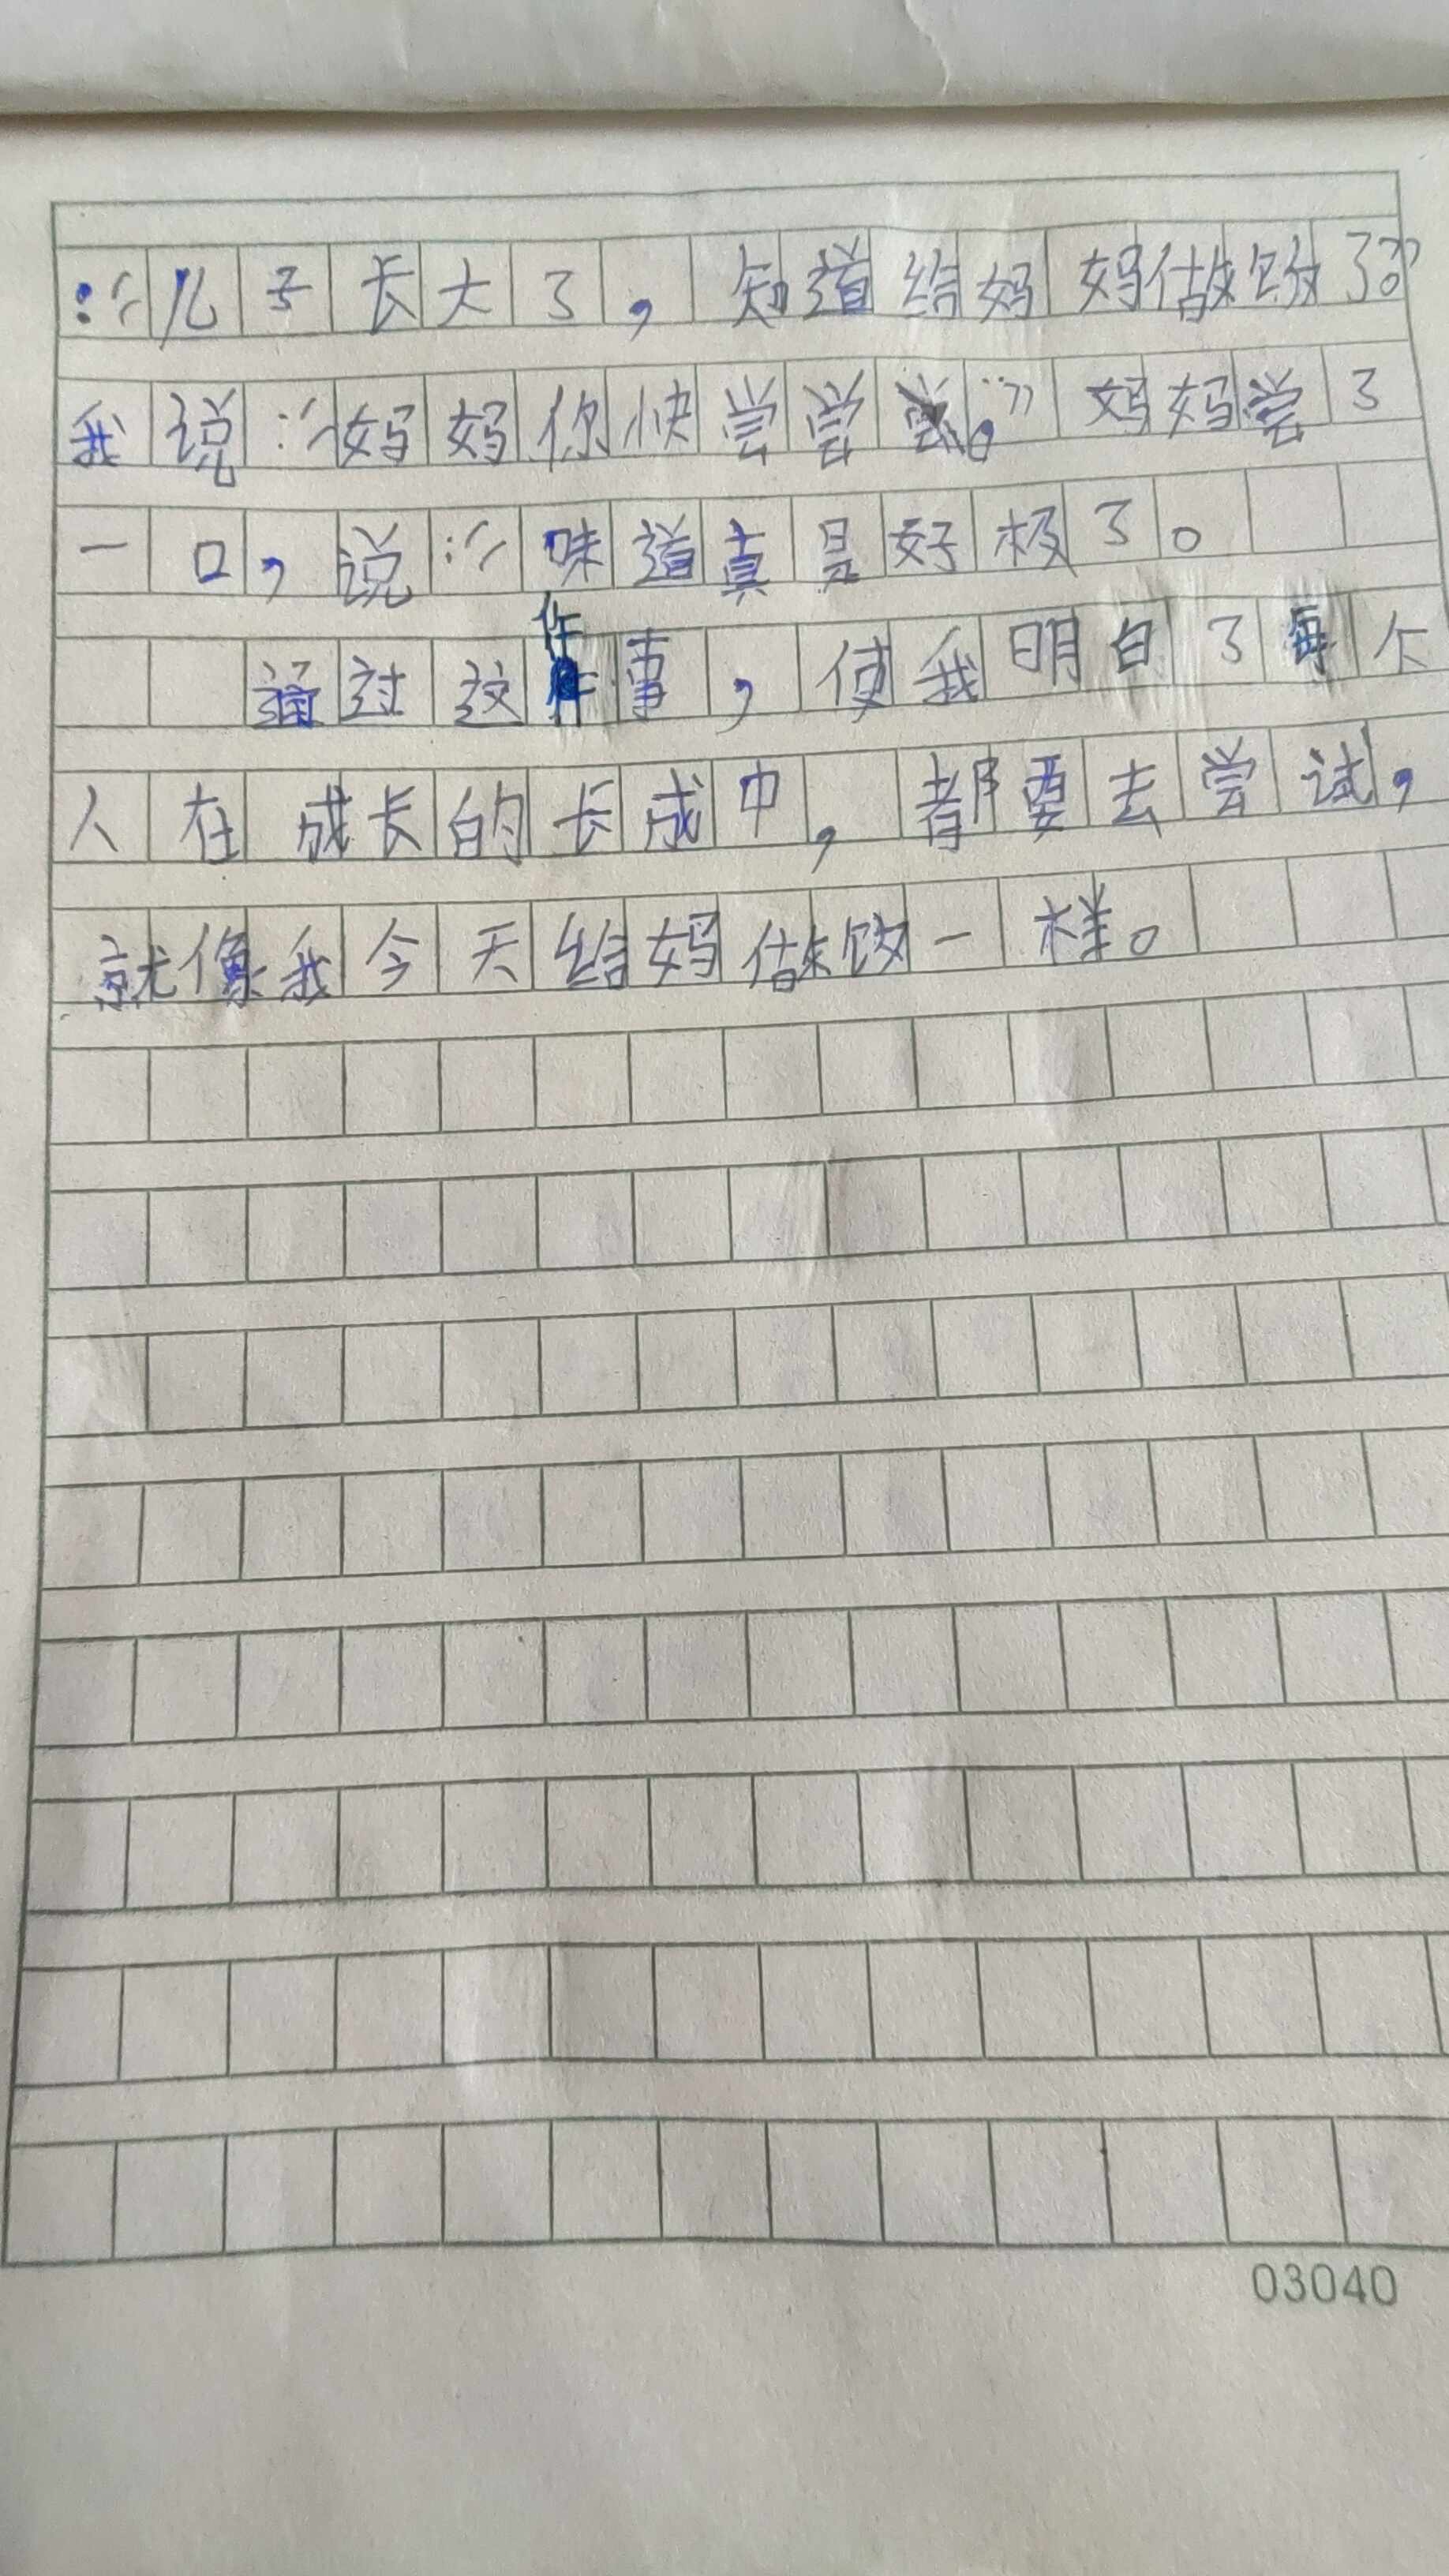 ：“儿子长大了，知道给妈妈做饭了。”
我说：“妈妈你快尝尝。”妈妈尝了
一口，说：“味道真是好极了。
通过这件事，使我明白了每个
人在成长的长成中，都要去尝试，
就像我今天给妈做饭一样。
03040